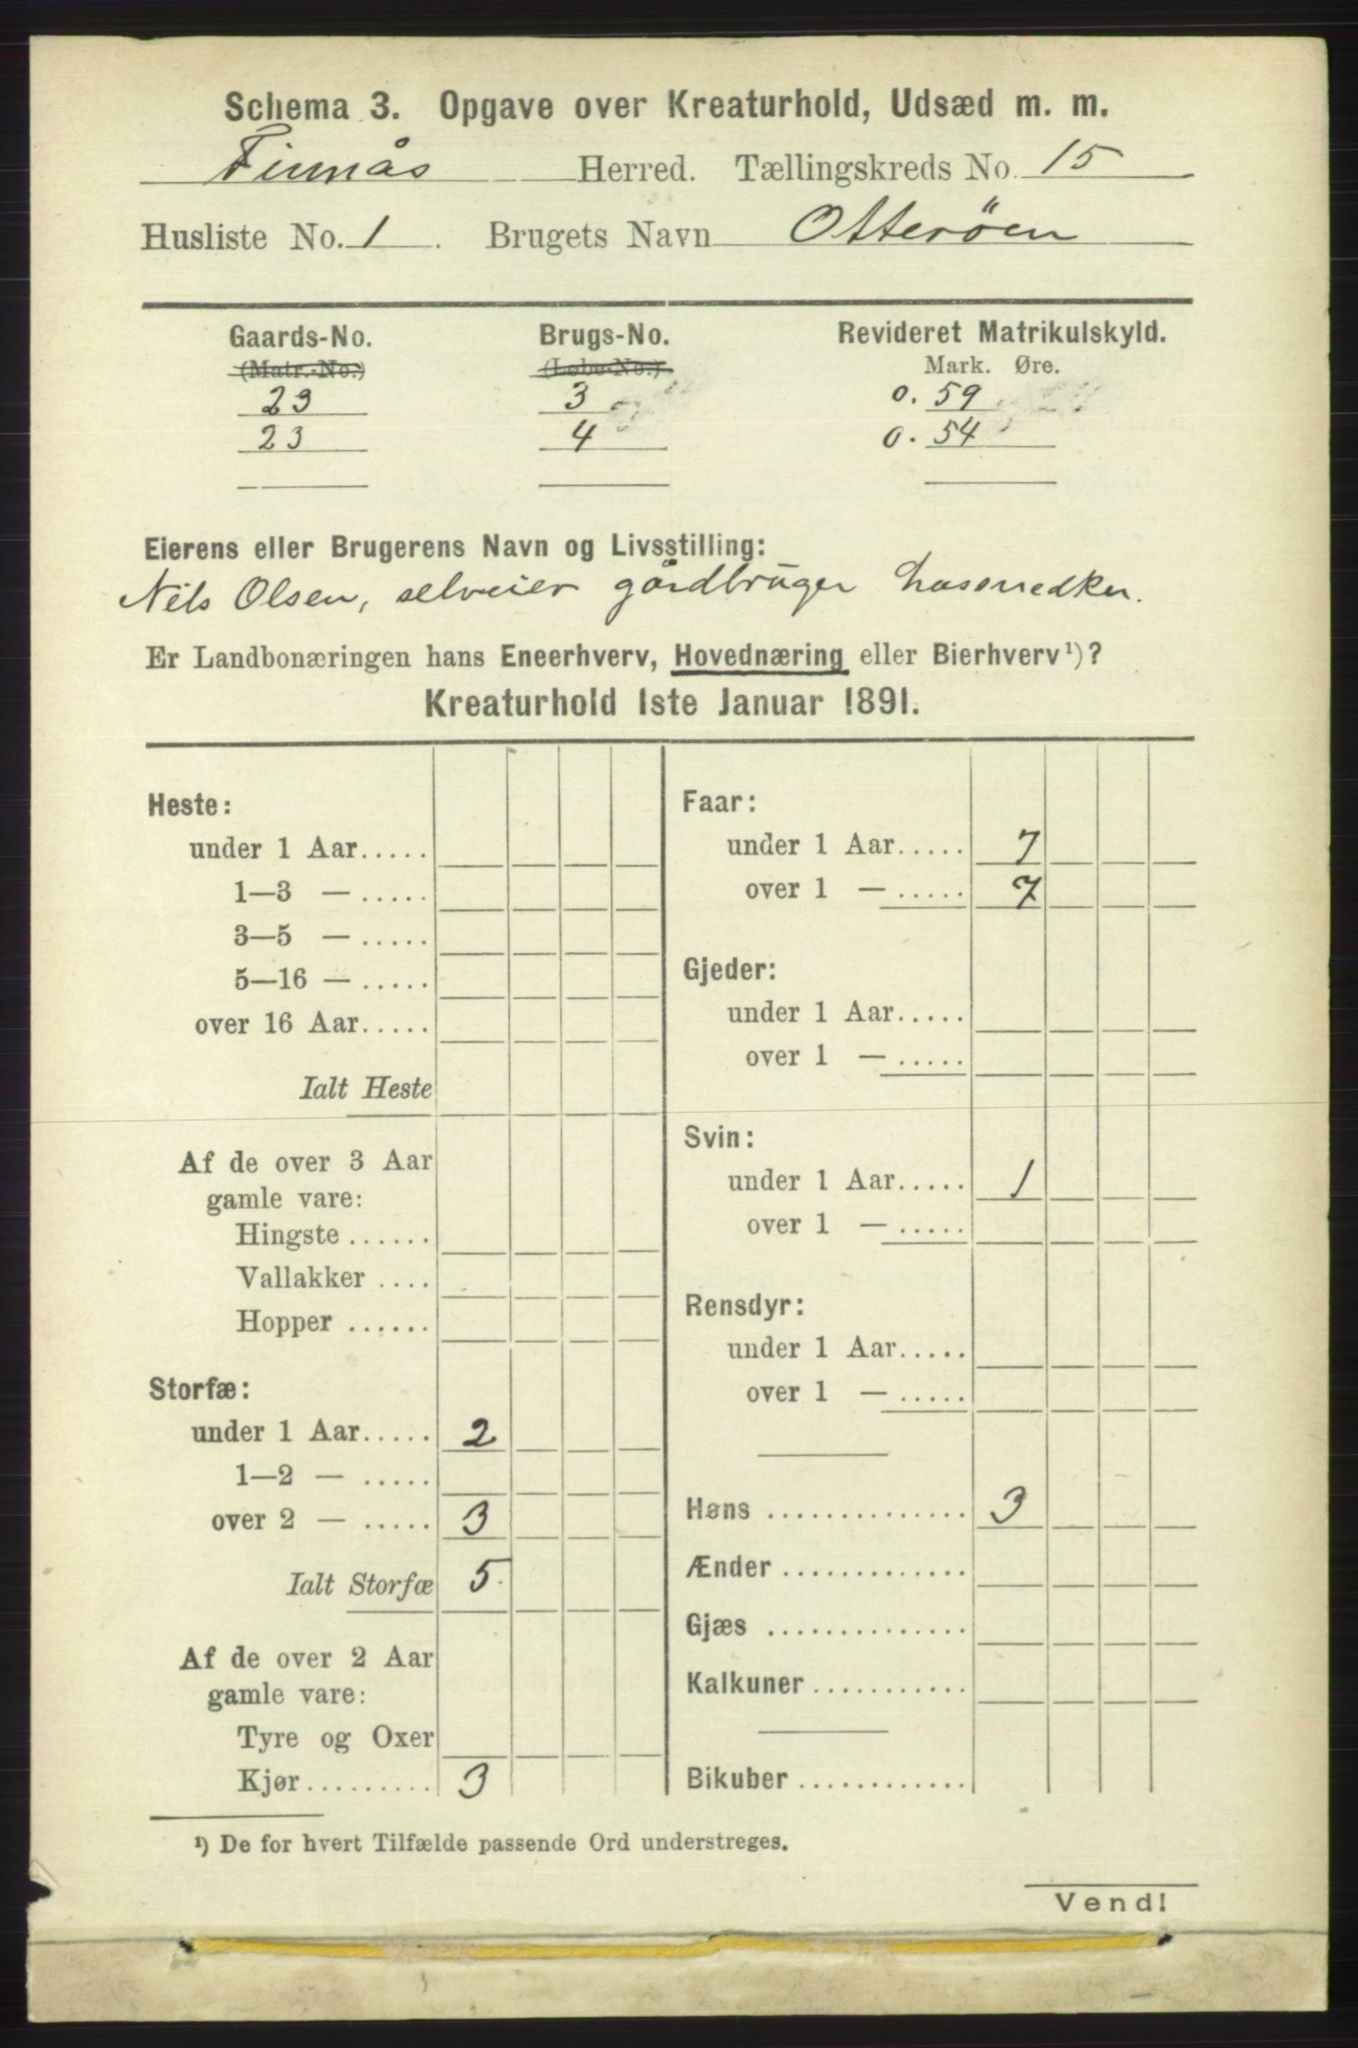 Schema 3. Opgave over Kreaturhold, Udsæd m. m.
Finnås Herred. Tællingskreds No. 15
Husliste No. 1. Brugets Navn Otterøen
Gaards-No. Brugs-No. Revideret Matrikulskyld.
(Matr.-No.) (Løbe-No.) Mark. Øre.
23 3 0. 59
23 4 0. 54
Eierens eller Brugerens Navn og Livsstilling:
Nils Olsen, selveier gårdbruger husmedker.
Er Landbonæringen hans Eneerhverv, Hovednæring eller Bierhverv¹)?
Kreaturhold 1ste Januar 1891.
Heste:
under 1 Aar.....
1—3 — .....
3—5 — .....
5—16 — .....
over 16 Aar.....
Ialt Heste
Af de over 3 Aar
gamle vare:
Hingste ......
Vallakker ....
Hopper ......
Storfæ:
under 1 Aar..... 2
1—2 — .....
over 2 — ..... 3
Ialt Storfæ 5.
Af de over 2 Aar
gamle vare:
Tyre og Oxer
Kjør......... 3
Faar:
under 1 Aar..... 7
over 1 — ..... 7
Gjeder:
under 1 Aar.....
over 1 — .....
Svin:
under 1 Aar..... 1
over 1 — .....
Rensdyr:
under 1 Aar.....
over 1 — .....
Høns .............. 3
Ænder .............
Gjæs ..............
Kalkuner ...........
Bikuber ............
¹) De for hvert Tilfælde passende Ord understreges.
Vend!